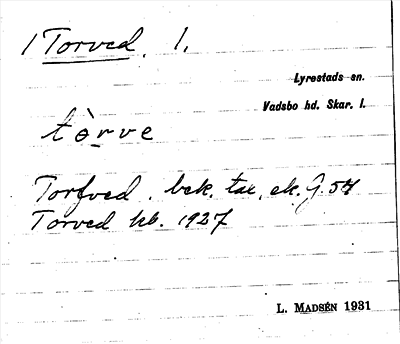 1 Torved. 1.
Lyrestads sn.
Vadsbo hd. Skar. l.
tò̱rve
Torfved. bek. tax, ek. G. 54
Torved hb. 1927
L. MADSÉN 1931